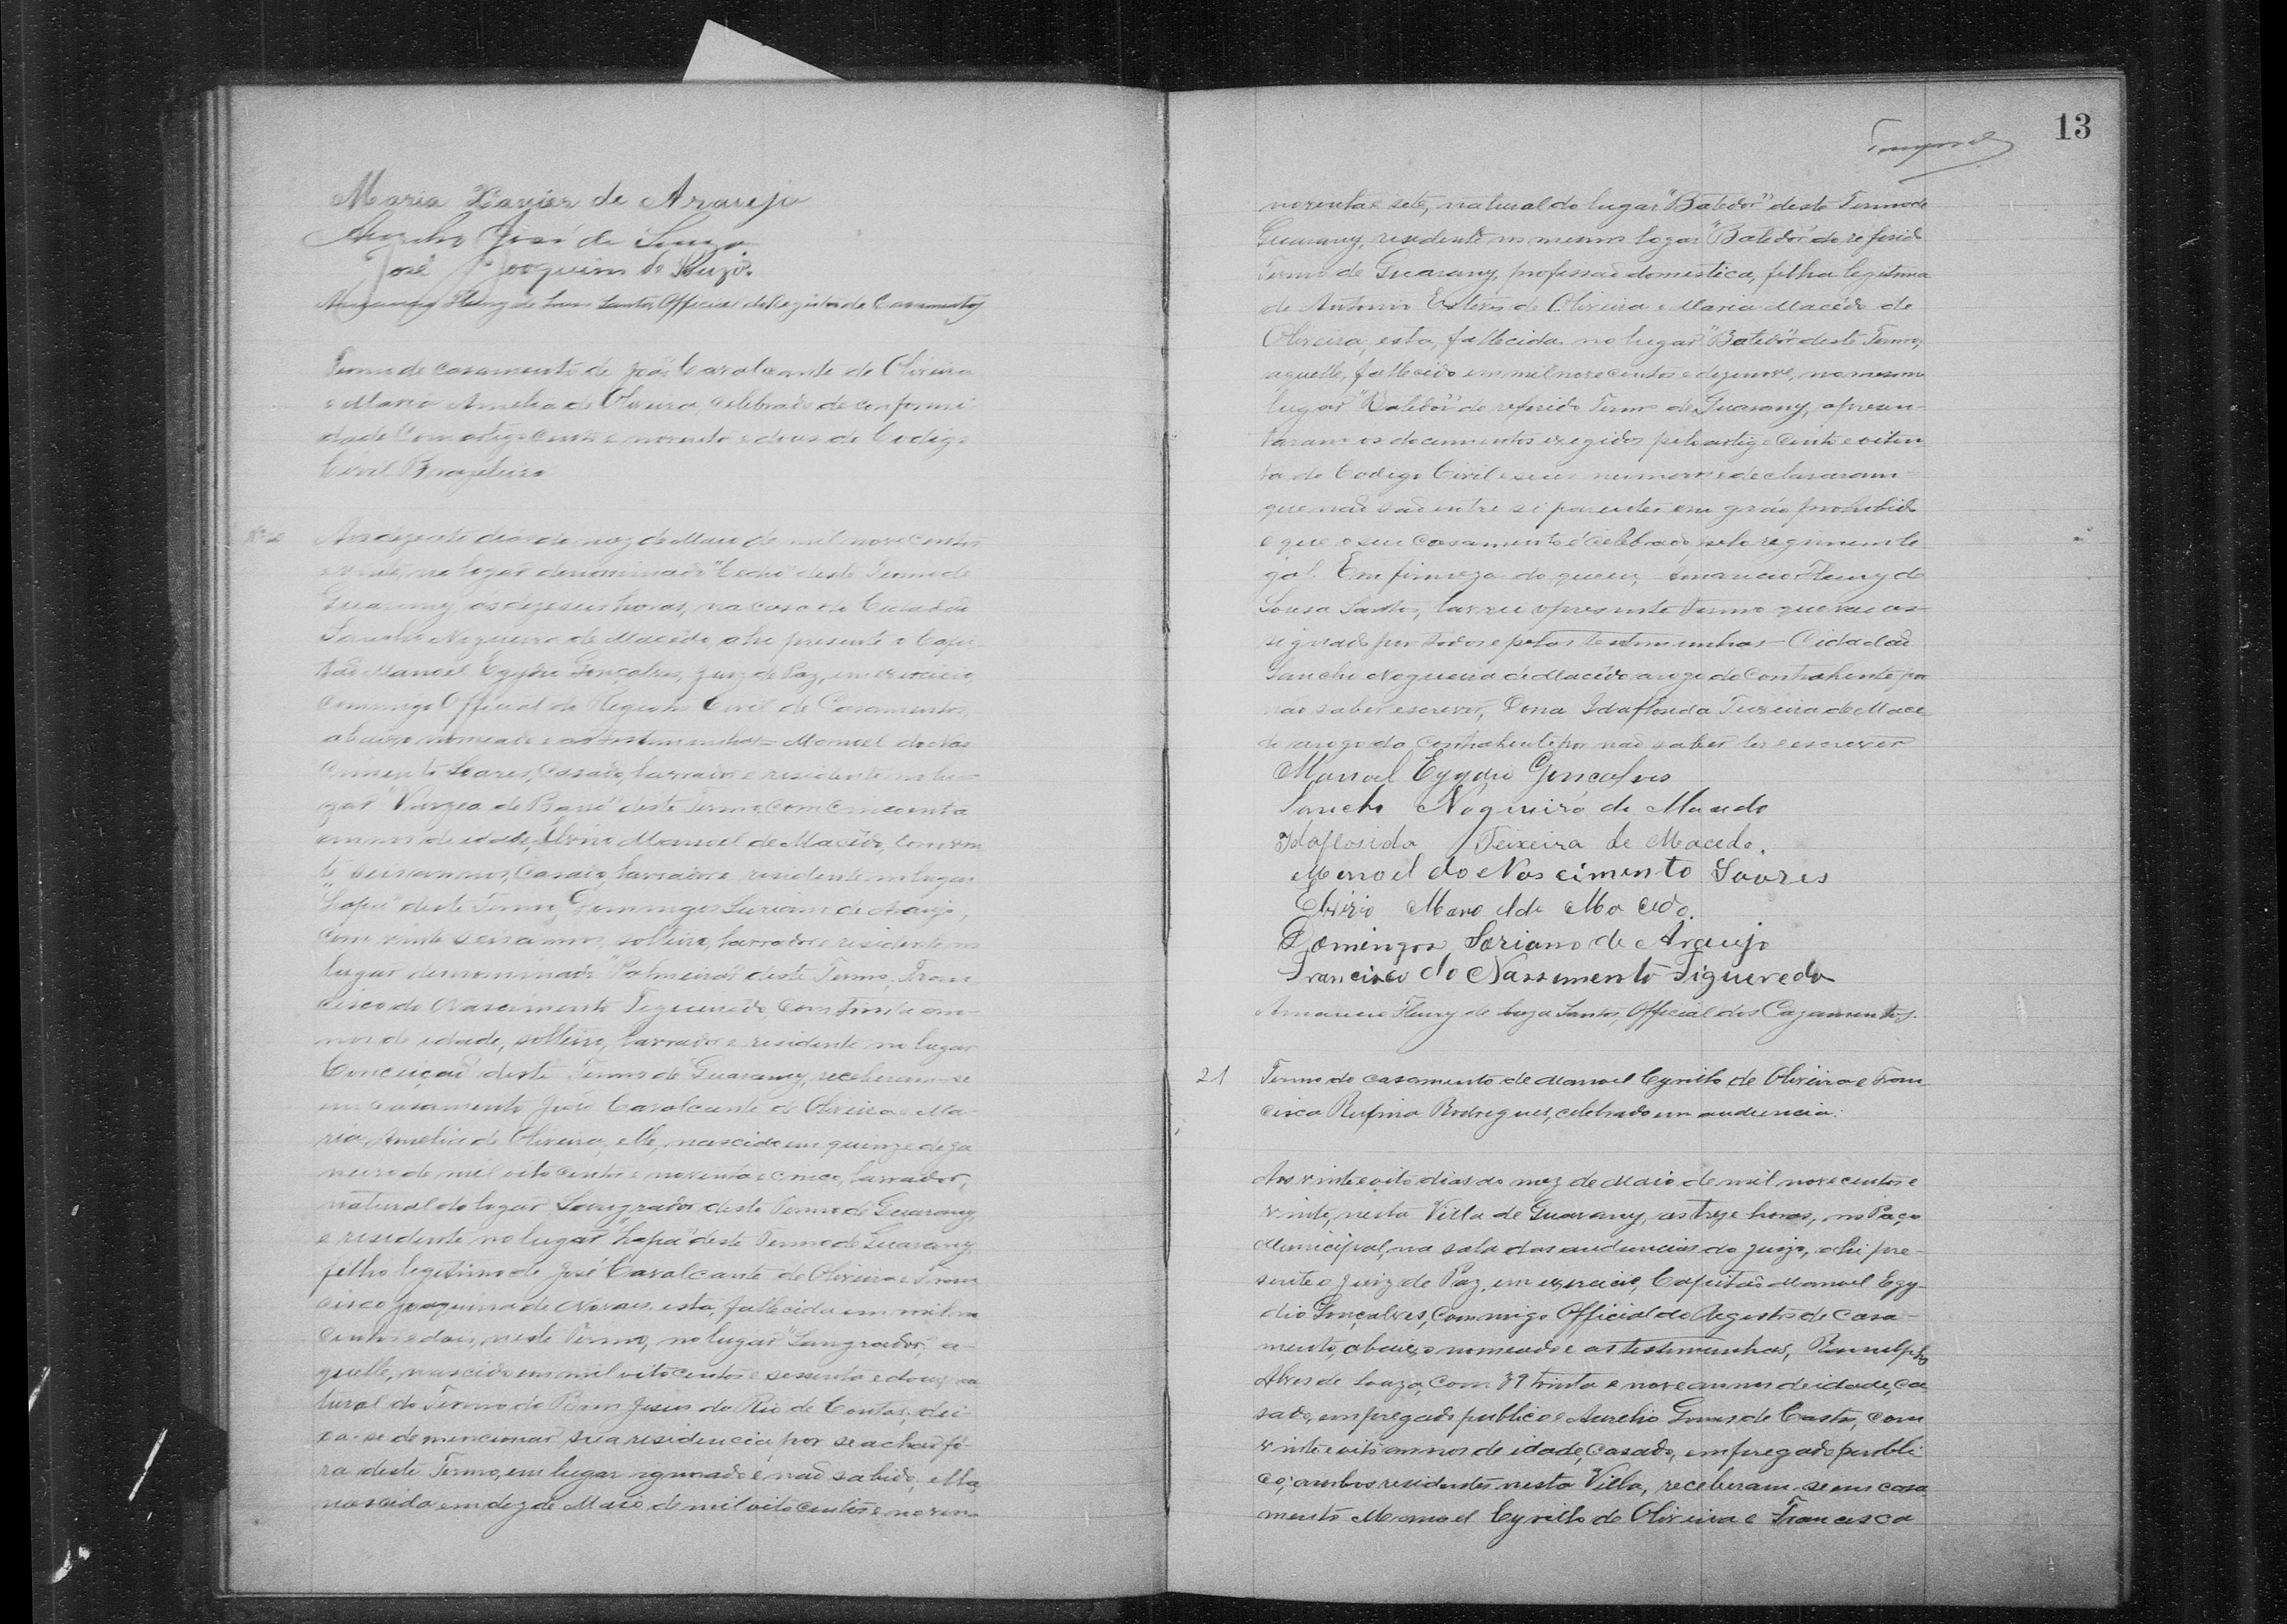 Maria Xavier de Araujo
José de Souza
José Joaquim de Souza.
Santos, Official do Registro de Casamentos
Termo de casamento de José Cavalcante de Oliveira
e Maria Amelia de Oliveira, celebrado de conformi-
dade com artigo cento e noventa e dous do Codigo
Civil Brazileiro
Aos dezoito dias do mez de Maio de mil nove centos
e vinte, no logar denominado deste Termo de
Guarany, ás dezeseis horas, na casa do Cidadão
Sancho Nogueira de Macêdo, ahi presente o Capi-
tão Manoel Egydio Gonçalves, Juiz de Paz, em exercicio,
commigo Official do Registro Civil de Casamentos,
abaixo nomeado e as testemunhas = Manoel do Nas
cimento Soares, casado, lavrador e residente no lu-
gar "Varzea da " deste Termo, com cincoenta
annos de idade, Manoel de Macêdo, com vin
te seis annos, casado, lavrador e residente no lugar
"Lapa" deste Termo, Domingos Suriano de Araujo,
com vinte seis annos, solteiro, lavrador e residente no
lugar denominado "Palmeiras" deste Termo, Fran
cisco do Nascimento Figueredo, com trinta an-
nos de idade, solteiro, lavrador e residente no lugar
Conceição deste Termo de Guarany, receberam-se
em casamento José Cavalcante de Oliveira e Ma-
ria Amelia de Oliveira, elle, nascido em quinze de Ja
neiro de mil oito centos e noventa e cinco, lavrador,
natural do logar Sangrador deste Termo de Guarany,
e residente no lugar "Lapa" deste Termo de Guarany,
filho legitimo de José Cavalcante de Oliveira e Fran
cisca Joaquina de Novaes, esta, fallecida em mil no
centos e dois, neste Termo, no lugar "Sangrador", a-
quelle, nascido em mil oito centos e sessenta e dous, na
tural do Termo do Bom Jesus do Rio de Contas, dei
xa-se de mencionar sua residencia, por se achar fó-
ra deste Termo, em lugar ignorado e não sabido, ella
nascida em dez de Maio de mil oito centos e noven-
13
noventa e sete, natural do lugar "Batedor" deste Termo de
Guarany, residente no mesmo logar "Batedor" do referido
Termo de Guarany, profissão domestica, filha legitima
de Antonio Esteves de Oliveira e Maria Macêdo de
Oliveira, esta, fallecida no lugar "Batedor" deste Termo,
aquelle, fallecido em mil nove centos e dezenove, no mesmo
lugar "Batedor" do referido Termo de Guarany, apresen-
taram os documentos exegidos pelo artigo cento e oiten
ta do Codigo Civil e seus numeros e declararam
que não são entre si parentes em gráo prohibido
e que o seu casamento é celebrado pelo regimem le-
gal. Em firmeza do que eu, Amancio Fleury de
Sousa Santos, lavrei o presente Termo que vai as-
signado por todos e pelas testemunhas - Cidadão
Sancho Nogueira de Macêdo a rogo do contrahente por
não saber escrever, Dona Idaflosida Teixeira de Mace
do a rogo da contrahente por não saber ler e escrever
Manoel Egydio Gonçalves
Sancho Nogueira de Macedo
Idaflosida Teixeira de Macedo.
Manoel do Nascimento Soares
Elvirio Manoel de Macedo.
Domingos Soriano de Araujo
Francisco do Nassimento Figueredo
Amancio Fleury de Souza Santos, Official dos Cazamentos.
21 Termo do casamento de Manoel Cyrillo de Oliveira e Fran
cisca Rufina Rodrigues, celebrado em audiencia.
Aos vinte e oito dias do mez de Maio de mil nove centos e
vinte, nesta Villa de Guarany, as treze horas, no Paço
Municipal, na sala das audiencias do Juizo, ahi pre-
sente o Juiz de Paz, em exercicio, Capitão Manoel Egy-
dio Gonçalves, commigo Official do Registro de Casa-
mento, abaixo nomeado e as testemunhas, Ranulpho
Alves de Souza, com 39 trinta e nove annos de idade, ca
sado, empregado publico e Aurelio Gomes de Castro, com
vinte e oito annos de idade, casado, empregado publi-
co, ambos residentes nesta Villa, receberam-se em casa
mento Manoel Cyrillo de Oliveira e Francisca